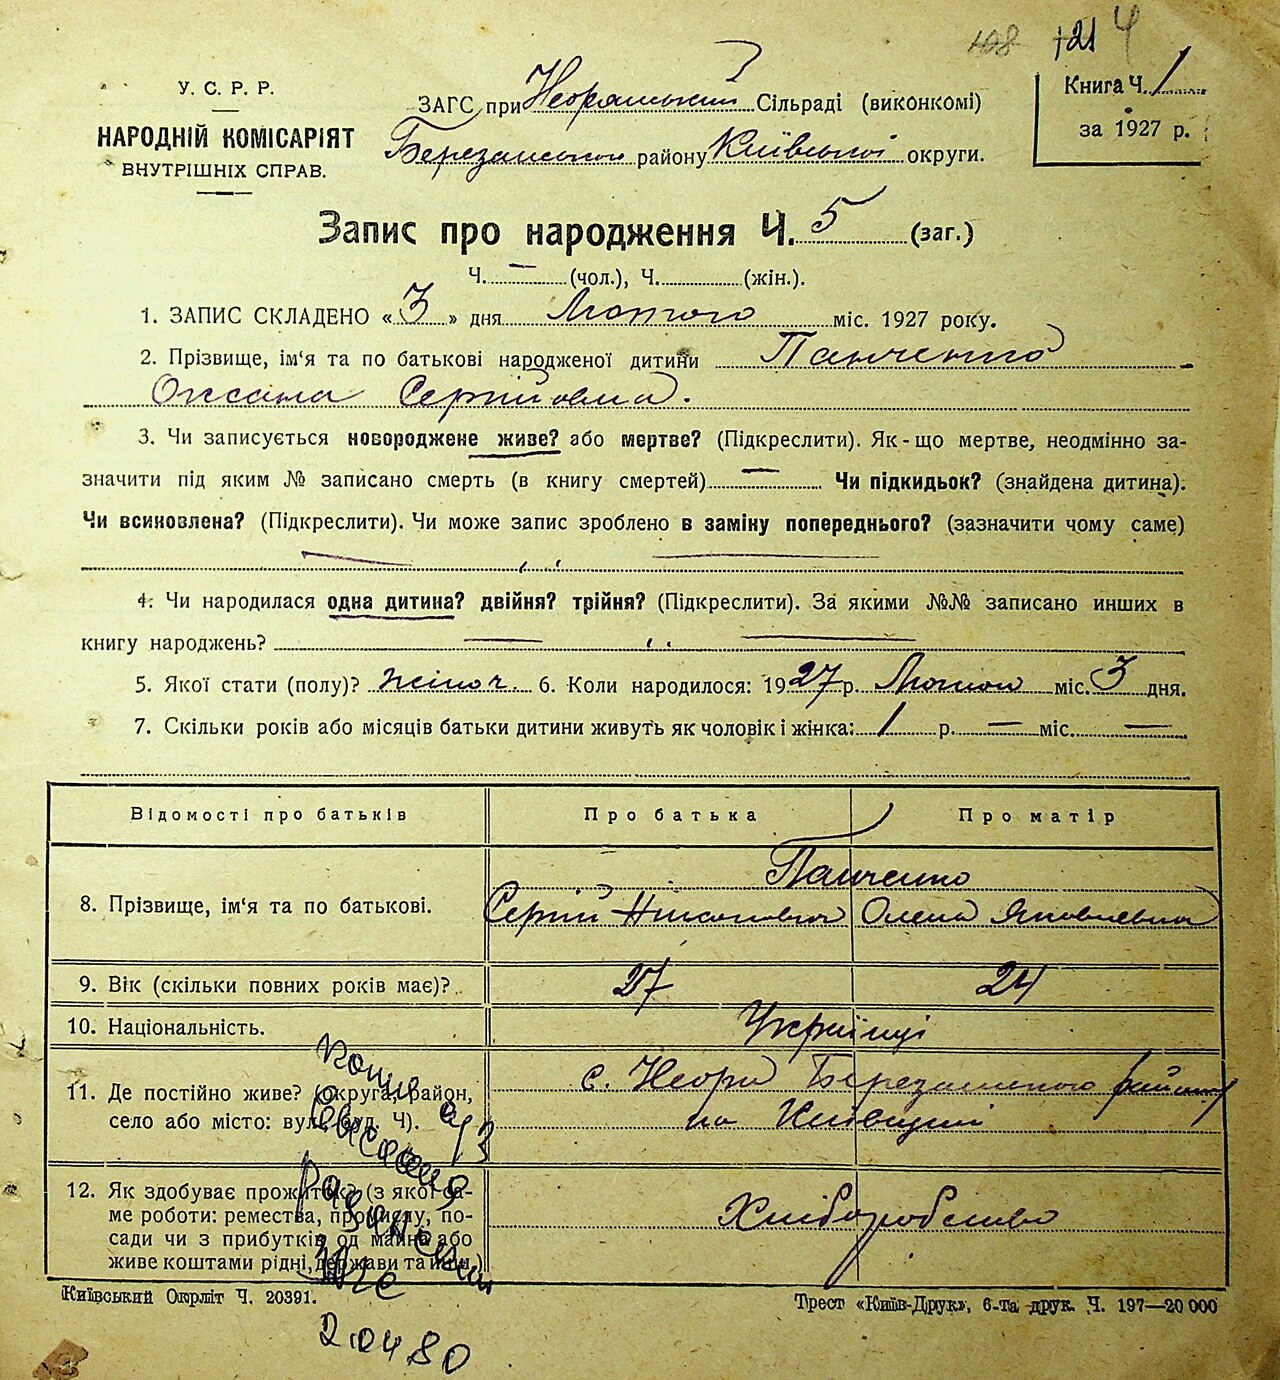 108 121 4
У. С. Р. Р.
НАРОДНІЙ КОМІСАРІЯТ
ВНУТРІШНІХ СПРАВ.
ЗАГС при Недрянський Сільраді (виконкомі)
Березанського району Київської округи.
Книга Ч. 1
за 1927 р.
Запис про народження Ч. 5 (заг.)
Ч. — (чол.), Ч. (жін.).
1. ЗАПИС СКЛАДЕНО « 3 » дня Лютого міс. 1927 року.
2. Прізвище, ім'я та по батькові народженої дитини Панченко
Оксана Сергійовна.
3. Чи записується новороджене живе? або мертве? (Підкреслити). Як-що мертве, неодмінно за-
значити під яким № записано смерть (в книгу смертей) — Чи підкидьок? (знайдена дитина).
Чи всиновлена? (Підкреслити). Чи може запис зроблено в заміну попереднього? (зазначити чому саме)
4. Чи народилася одна дитина? двійня? трійня? (Підкреслити). За якими №№ записано инших в
книгу народжень?
5. Якої стати (полу)? жіноч. 6. Коли народилося: 1927 р. Лютого міс. 3 дня.
7. Скільки років або місяців батьки дитини живуть як чоловік і жінка: 1 р. — міс. —
Відомості про батьків Про батька Про матір
Панченко
8. Прізвище, ім'я та по батькові. Сергій Олена Яковлевна
9. Вік (скільки повних років має)? 27 24
10. Національність. Українці
11. Де постійно живе? (округа, район, с. Недри Березанського району
село або місто: вул., буд. Ч). на Київщині
12. Як здобуває прожиток? (з якої са-
ме роботи: ремества, промислу, по- Хліборобство
сади чи з прибутків од майна або
живе коштами рідні, держави та инш.)
2.04.80
Київський Окрліт Ч. 20391.
Трест «Київ-Друк», 6-та друк. Ч. 197—20 000